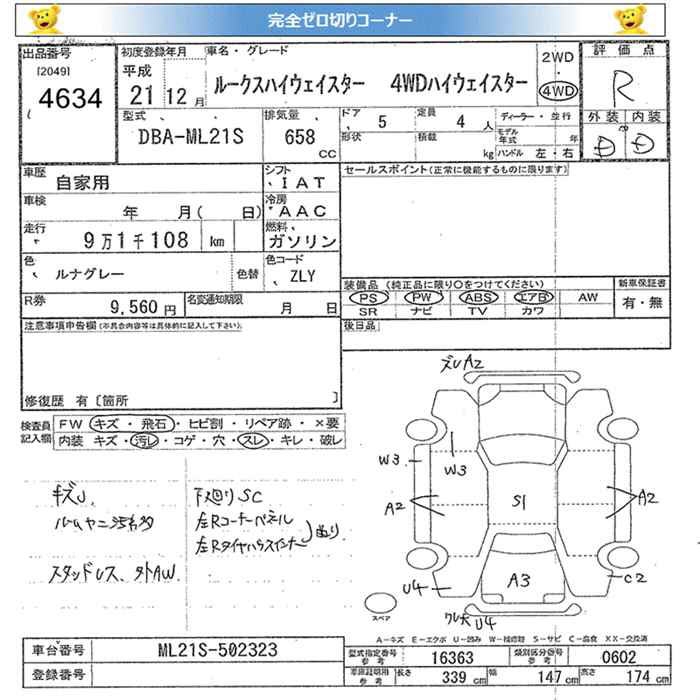 完全ゼロ切りコーナー
出品番号
[2049]
4634
初度登録年月
平成
21 12 月
車名・グレード
ルークスハイウェイスター 4WDハイウェイスター
2WD
4WD
評価点
R
外装 内装
D D
型式
DBA-ML21S
排気量
658
CC
ドア
5
定員
4 人
形状
積載
kg
ディーラー・並行
モデル年式 年
ハンドル 左・右
車歴
自家用
シフト
IAT
車検
年 月( 日)
冷房
AAC
走行
9万1千108 km
燃料
ガソリン
色
ルナグレー
色替
色コード
ZLY
R券
9,560 円
名変通知期限
月 日
セールスポイント(正常に機能するものに限ります)
装備品 (純正品に限り○をつけてください)
PS PW ABS エアB AW
SR ナビ TV カワ
新車保証書
有・無
後日品
注意事項申告欄(不具合内容等は具体的に記入して下さい)
修復歴 有〔箇所 〕
検査員記入欄
FW キズ・飛石・ヒビ割・リペア跡・×要
内装 キズ・汚レ・コゲ・穴・スレ・キレ・破レ
キズ
ルームヤニ汚れ多
スタッドレス、外AW.
下廻りSC
左Rコーナーパネル
左Rタイヤハウスインナー
曲り
ズレA2
W3
W3
A2
S1
A2
U4
A3
C2
ワレ大 U4
スペア
A-キズ E-エクボ U-凹み W-補修跡 S-サビ C-腐食 XX-交換済
車台番号
ML21S-502323
登録番号
型式指定番号
参考
16363
類別区分番号
参考
0602
車庫証明用
参考
長さ 339 cm 幅 147 cm 高さ 174 cm